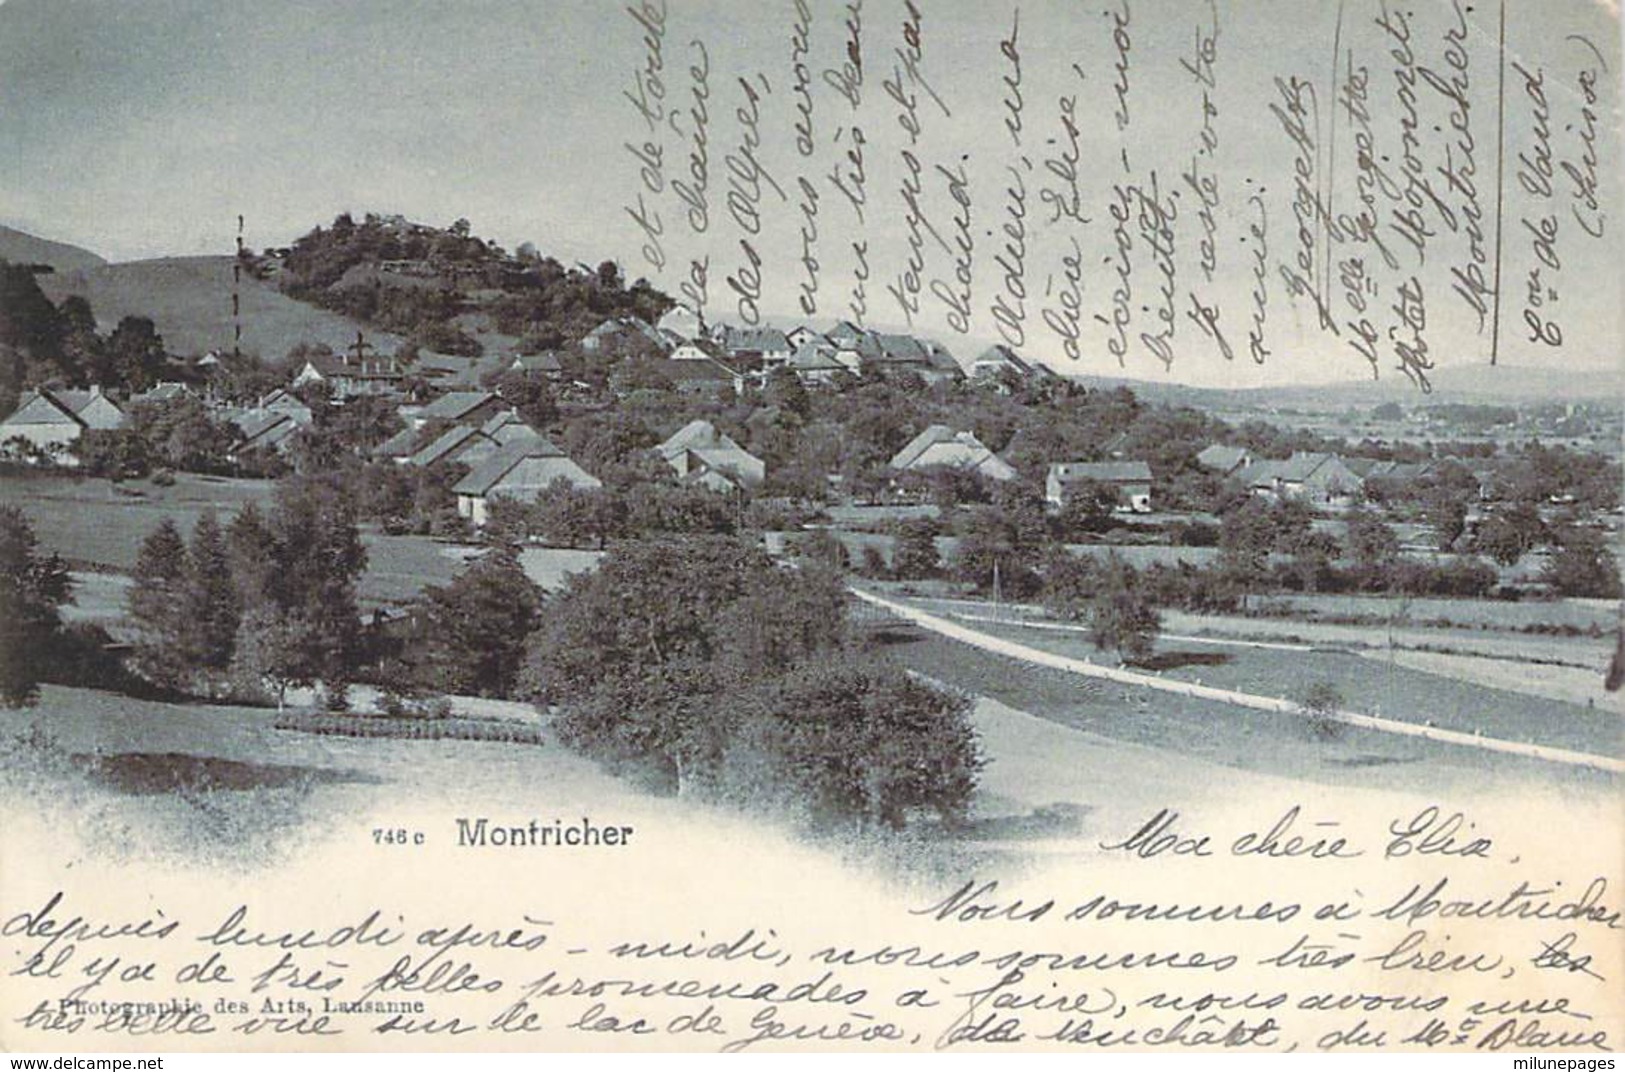 746 c Montricher
Ma chère Elise,
Nous sommes à Montricher
depuis lundi après-midi, nous sommes très bien, les
il y a de très belles promenades à faire, nous avons une
Photographie des Arts, Lausanne
très belle vue sur le lac de Genève, de Neuchâtel, du Mt Blanc
et de toute
la chaîne
des Alpes,
nous avons
un très beau
temps et pas
chaud.
Adieu, ma
chère Elise,
écrivez-moi
bientôt,
je reste votre
amie.
Georgette
Melle Georgette
Hôtel Mojonnet.
Montricher.
Con de Vaud
(Suisse)
milunepages